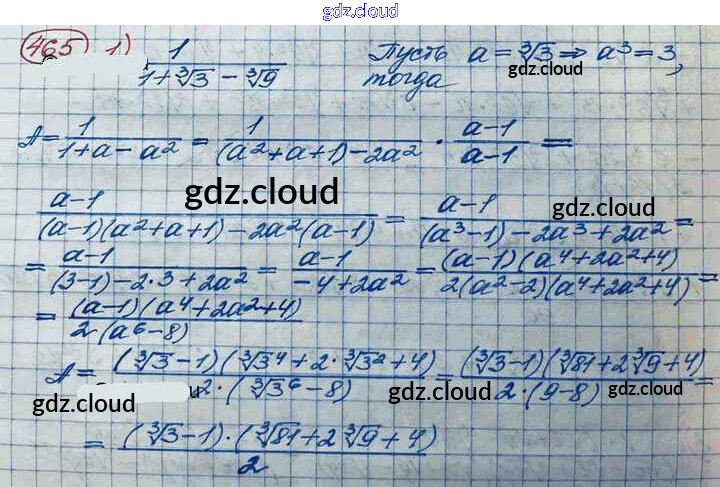 gdz.cloud
465 1) 1/(1+∛3 − ∛9) Пусть a = ∛3 ⇒ a³ = 3,
gdz.cloud тогда gdz.cloud
A = 1/(1+a−a²) = 1/((a²+a+1)−2a²) · (a−1)/(a−1) =
(a−1)/((a−1)(a²+a+1)−2a²(a−1)) = (a−1)/((a³−1)−2a³+2a²) =
gdz.cloud gdz.cloud
= (a−1)/((3−1)−2·3+2a²) = (a−1)/(−4+2a²) = (a−1)(a⁴+2a²+4)/(2(a²−2)(a⁴+2a²+4)) =
= (a−1)(a⁴+2a²+4)/(2(a⁶−8))
A = (∛3−1)(∛3⁴+2·∛3²+4)/(2·(∛3⁶−8)) = (∛3−1)(∛81+2∛9+4)/(2·(9−8)) =
gdz.cloud gdz.cloud gdz.cloud
= (∛3−1)·(∛81+2∛9+4)/2